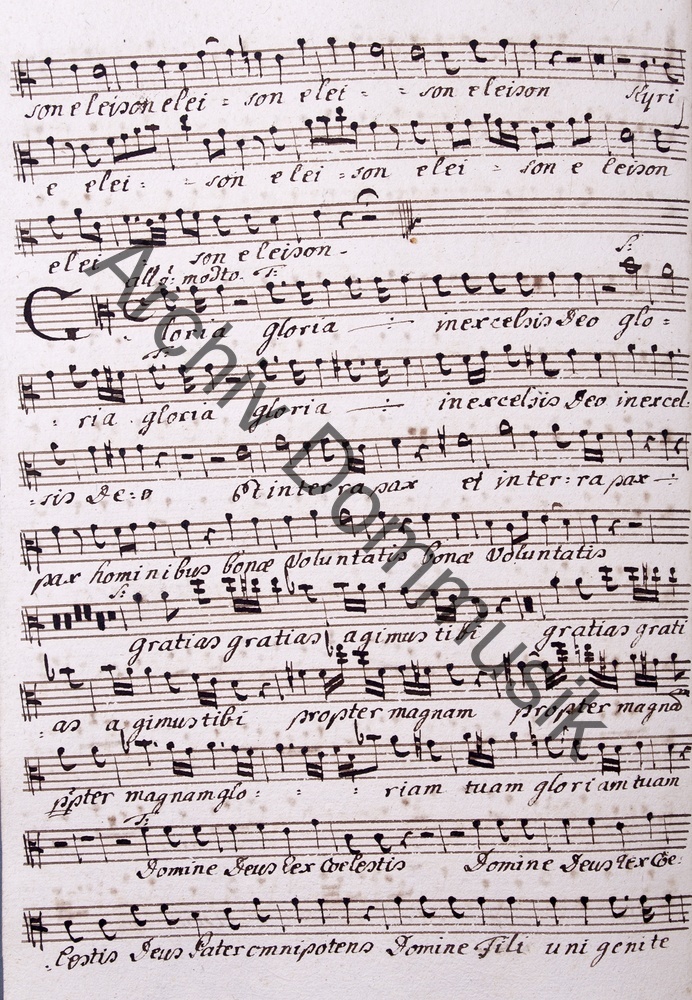 son eleison elei = son elei = = son eleison Kyri
e elei = = son elei = son elei = son e leison
elei = son eleison.
allo: modto. T:
S:
Gloria gloria ÷ in excelsis Deo glo =
T:
= ria gloria gloria ÷ in excelsis Deo in excel.
= sis De = o Et in terra pax et in ter = ra pax ÷
pax hominibus bonæ voluntatis bonæ voluntatis
S:
gratias gratias agimus tibi gratias grati
= as a gimus tibi propter magnam propter magnā
ppter magnam glo = = = riam tuam gloriam tuam
T:
Domine Deus Rex Coelestis Domine Deus Rex Coe =
= lestis Deus Pater omnipotens Domine Fili unigenite
Archiv Dommusik